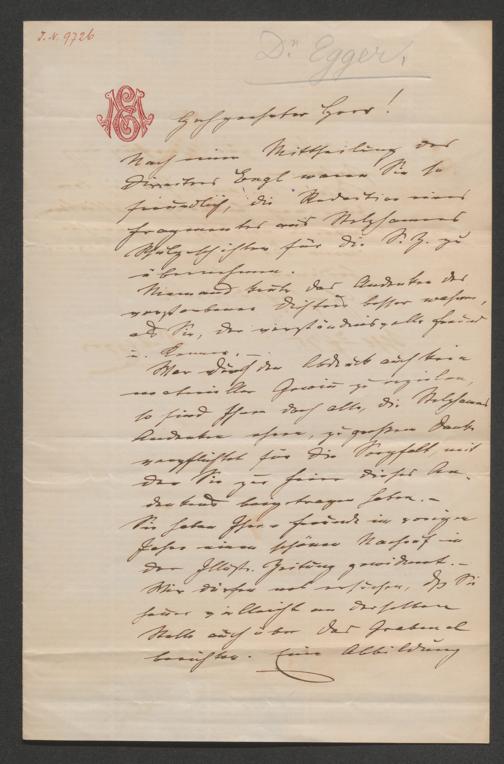 J. N. 9726
Dr Egger,
Hochgeehrter Herr!
Nach einer Mittheilung des
Direktors Engl waren Sie so
freundlich, die Redaction eines
Fragmentes aus Stelzhamers
für die S. Z. zu
übernehmen.
Niemand konnte das Andenken des
verstorbenen Dichters besser wahren,
als Sie, der verständnisvolle Freund
u. Kenner. –
War durch den Abdruck auch kein
materieller Gewinn zu erzielen,
so sind Ihnen doch alle, die Stelzhamers
Andenken ehren, zu großem Dank
verpflichtet für die Sorgfalt mit
der Sie zur Feier dieses An-
denkens beigetragen haben. –
Sie haben Ihrem Freunde im vorigen
Jahre einen schönen Nachruf in
der Illustr. Zeitung gewidmet. –
Wir dürfen wol ersuchen, daß Sie
heuer vielleicht an derselben
Stelle auch über das Grabmal
berichten. Eine Abbildung